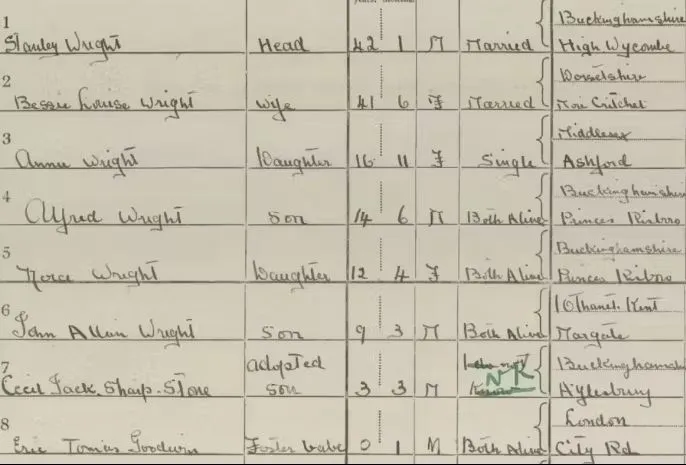 1
Buckinghamshire
Stanley Wright Head 42 1 M Married High Wycombe
2
Dorsetshire
Bessie Louise Wright Wife 41 6 F Married More Critchel
3
Middlesex
Annie Wright Daughter 16 11 F Single Ashford
4
Buckinghamshire
Alfred Wright Son 14 6 M Both Alive Princes Risbro
5
Buckinghamshire
Wright Daughter 12 4 F Both Alive Princes Risbro
6
I of Thanet. Kent
John Allan Wright Son 9 3 M Both Alive Margate
7
adopted I do not Buckinghamshi
Cecil Jack. Sharp. Stone Son 3 3 M Know NK Aylesbury
8
London
Eric Tomas Goodwin Foster babe 0 1 M Both Alive City Rd